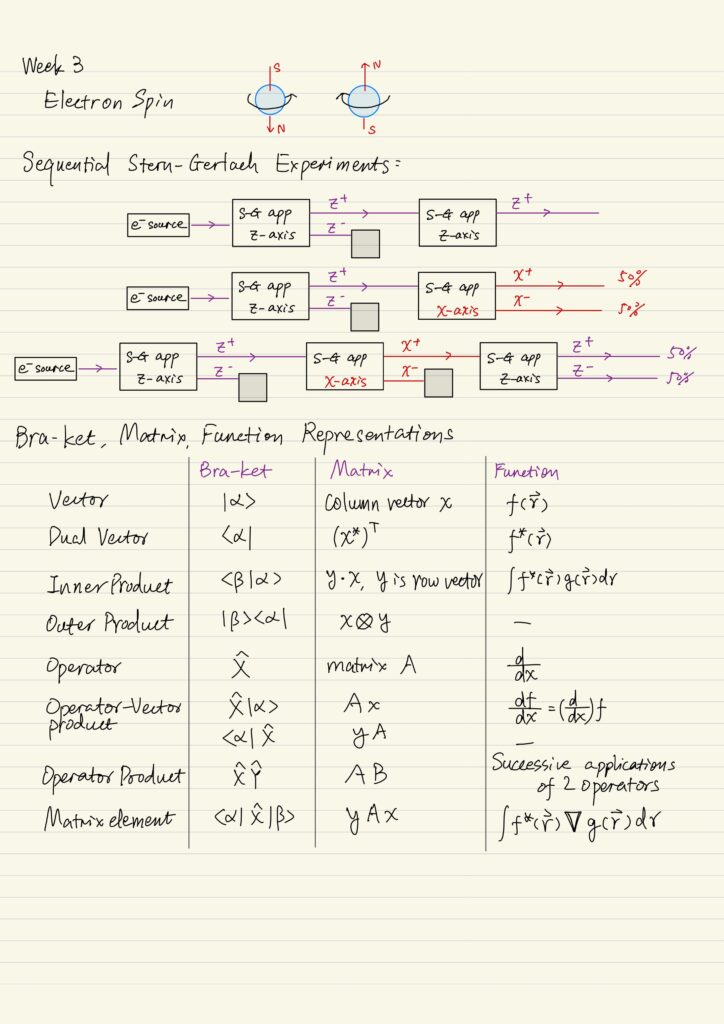 Week 3
S N
Electron Spin
N S
Sequential Stern-Gerlach Experiments:
e⁻ source S-G app Z-axis Z+ Z- S-G app Z-axis Z+
e⁻ source S-G app Z-axis Z+ Z- S-G app X-axis X+ 50% X- 50%
e⁻ source S-G app Z-axis Z+ Z- S-G app X-axis X+ X- S-G app Z-axis Z+ 50% Z- 50%
Bra-ket, Matrix, Function Representations
Bra-ket Matrix Function
Vector |α> Column vector x f(r⃗)
Dual Vector <α| (x*)ᵀ f*(r⃗)
Inner Product <β|α> y·x, y is row vector ∫f*(r⃗)g(r⃗)dr
Outer Product |β><α| x⊗y —
Operator X̂ matrix A d/dx
Operator-Vector product X̂|α> Ax df/dx = (d/dx)f
<α|X̂ yA —
Operator Product X̂Ŷ AB Successive applications of 2 operators
Matrix element <α|X̂|β> yAx ∫f*(r⃗)∇g(r⃗)dr